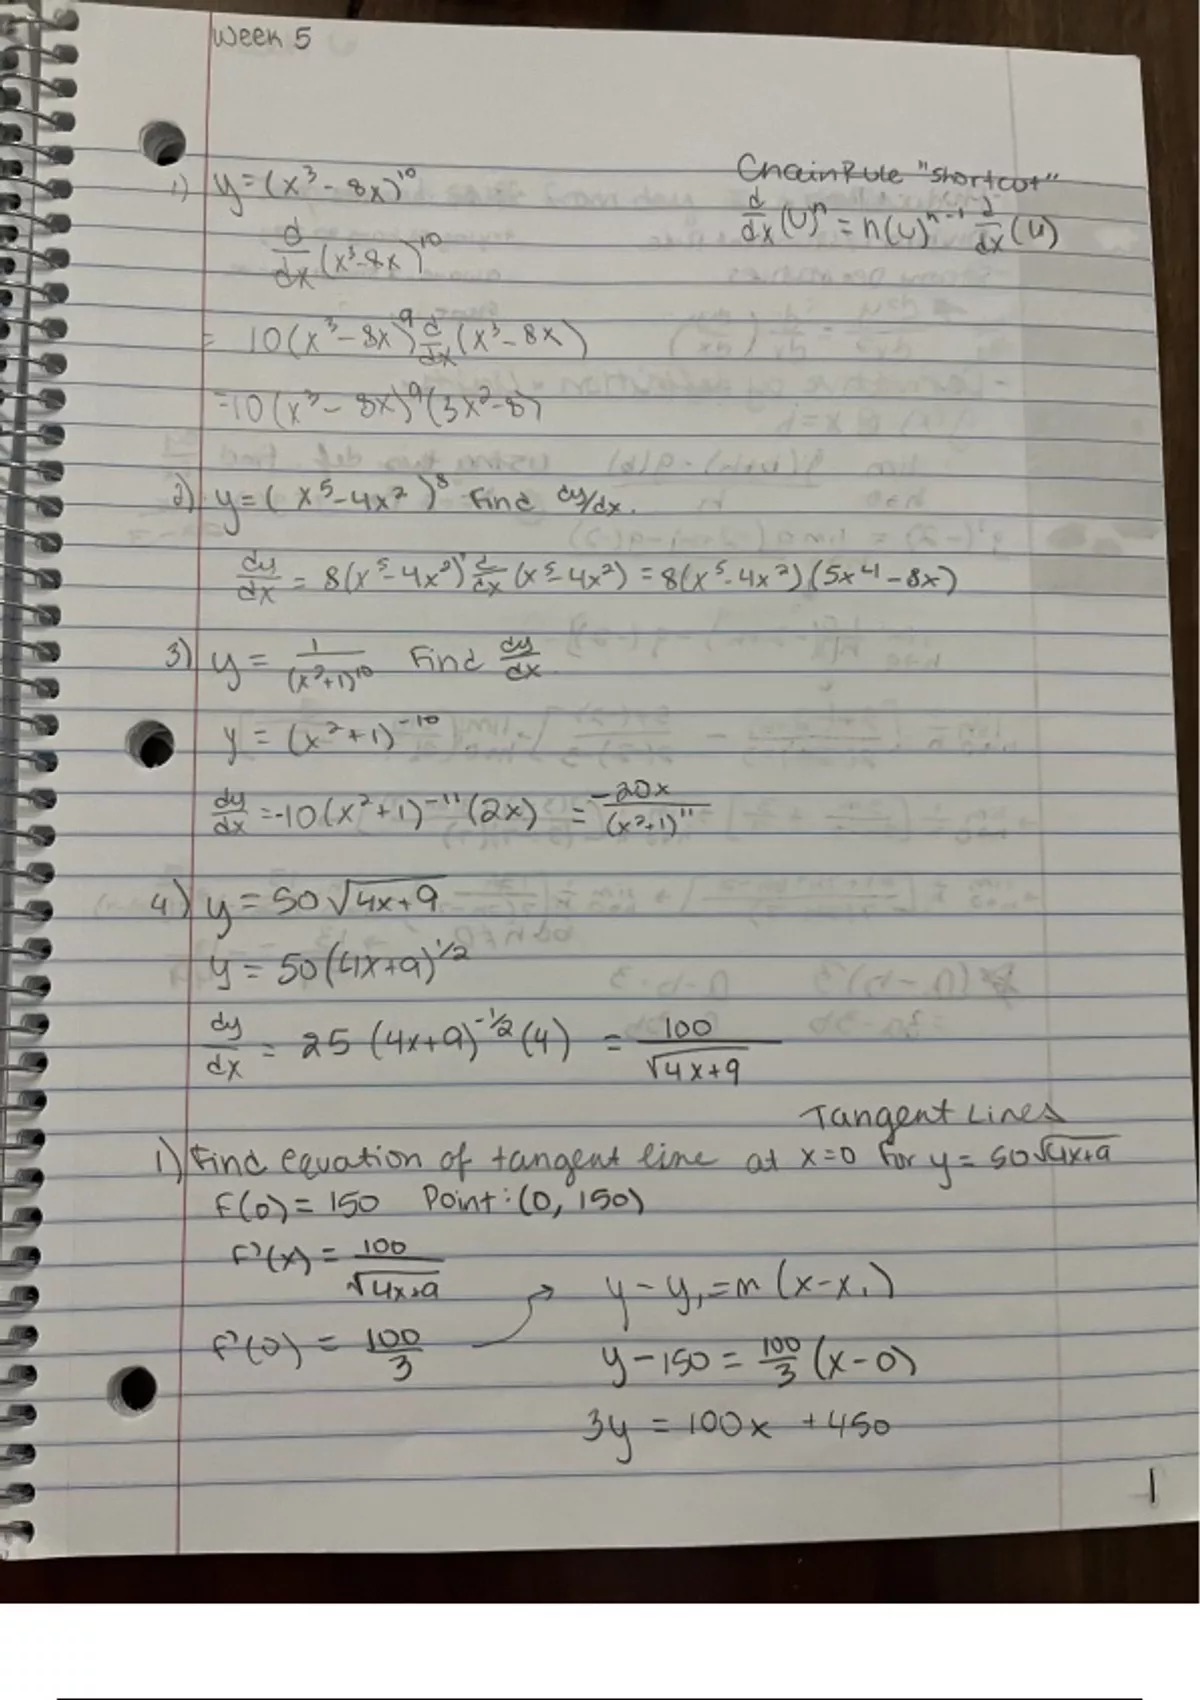 Week 5
Chain Rule "shortcut"
1) y = (x³ - 8x)¹⁰
d/dx (u)ⁿ = n(u)ⁿ⁻¹ d/dx (u)
d/dx (x³-8x)¹⁰
= 10(x³-8x)⁹ d/dx (x³-8x)
=10(x³-8x)⁹(3x²-8)
2) y=(x⁵-4x²)⁸ Find dy/dx.
dy/dx = 8(x⁵-4x²)⁷ d/dx (x⁵-4x²) = 8(x⁵-4x²)(5x⁴-8x)
3) y = 1/(x²+1)¹⁰ Find dy/dx.
y = (x²+1)⁻¹⁰
dy/dx = -10(x²+1)⁻¹¹(2x) = -20x/(x²+1)¹¹
4) y = 50√4x+9
y = 50(4x+9)^1/2
dy/dx = 25(4x+9)^-1/2(4) = 100/√4x+9
Tangent Lines
1) Find equation of tangent line at x=0 for y = 50√4x+9
F(0) = 150 Point: (0, 150)
F'(x) = 100/√4x+9
y-y₁=m(x-x₁)
F'(0) = 100/3
y-150 = 100/3 (x-0)
3y = 100x + 450
1